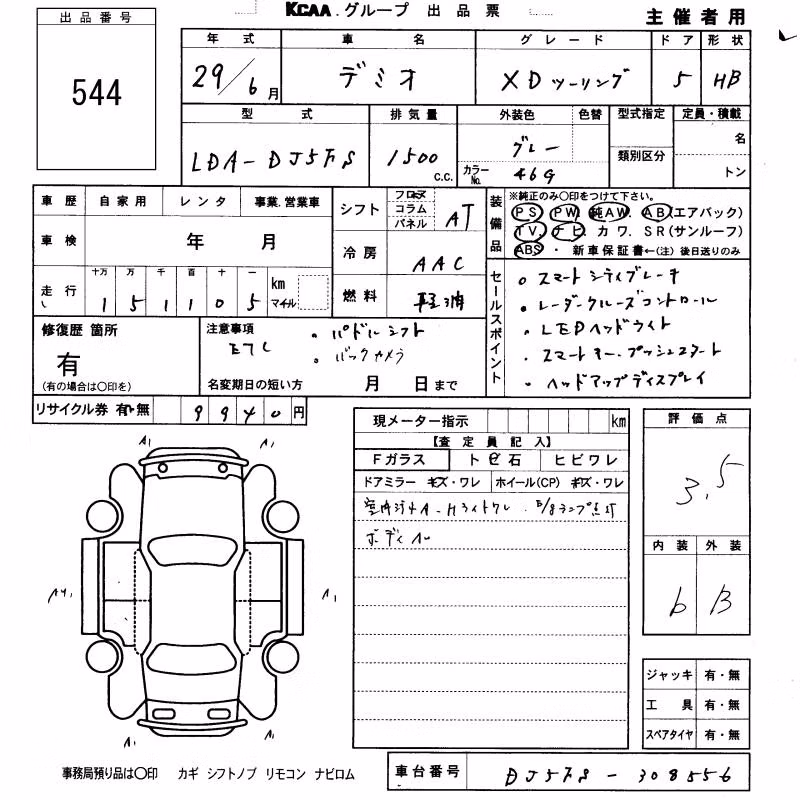 KCAA.グループ 出品票
主催者用
出品番号
544
年式 車名 グレード ドア 形状
29/6月 デミオ XDツーリング 5 HB
型式 排気量 外装色 色替 型式指定 定員・積載
LDA-DJ5FS 1500 c.c. グレー 類別区分 名
カラーNo. 46G トン
車歴 自家用 レンタ 事業.営業車
車検 年 月
走行 十万 万 千 百 十 一 km マイル
1 5 1 1 0 5
シフト フロア コラム パネル AT
冷房 AAC
燃料 軽油
装備品 ※純正のみ○印をつけて下さい。
PS PW 純AW. AB(エアバック)
TV ナビ. カワ. SR(サンルーフ)
ABS ・ 新車保証書←(注) 後日送りのみ
セールスポイント
・スマートシティブレーキ
・レーダークルーズコントロール
・LEDヘッドライト
・スマートキー・プッシュスタート
・ヘッドアップディスプレイ
修復歴 箇所
有
(有の場合は○印を)
注意事項 ・パドルシフト
ETC ・バックカメラ
名変期日の短い方 月 日まで
リサイクル券 有・無 9940円
現メーター指示 km
【査定員記入】
Fガラス トビ石 ヒビワレ
ドアミラー キズ・ワレ ホイール(CP) キズ・ワレ
ボディ
評価点
3.5
内装 外装
b B
A1 A1
A1
A1 A1
ジャッキ 有・無
工具 有・無
スペアタイヤ 有・無
事務局預り品は○印 カギ シフトノブ リモコン ナビロム
車台番号 DJ5FS-308556